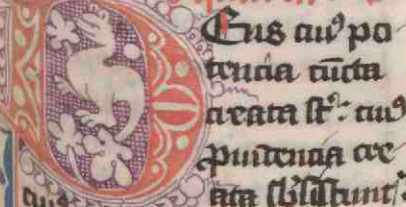 Deus cuiꝰ po
tencia cūcta
creata st̄: cuiꝰ
ꝓuidencia cre
ata subsistunt: